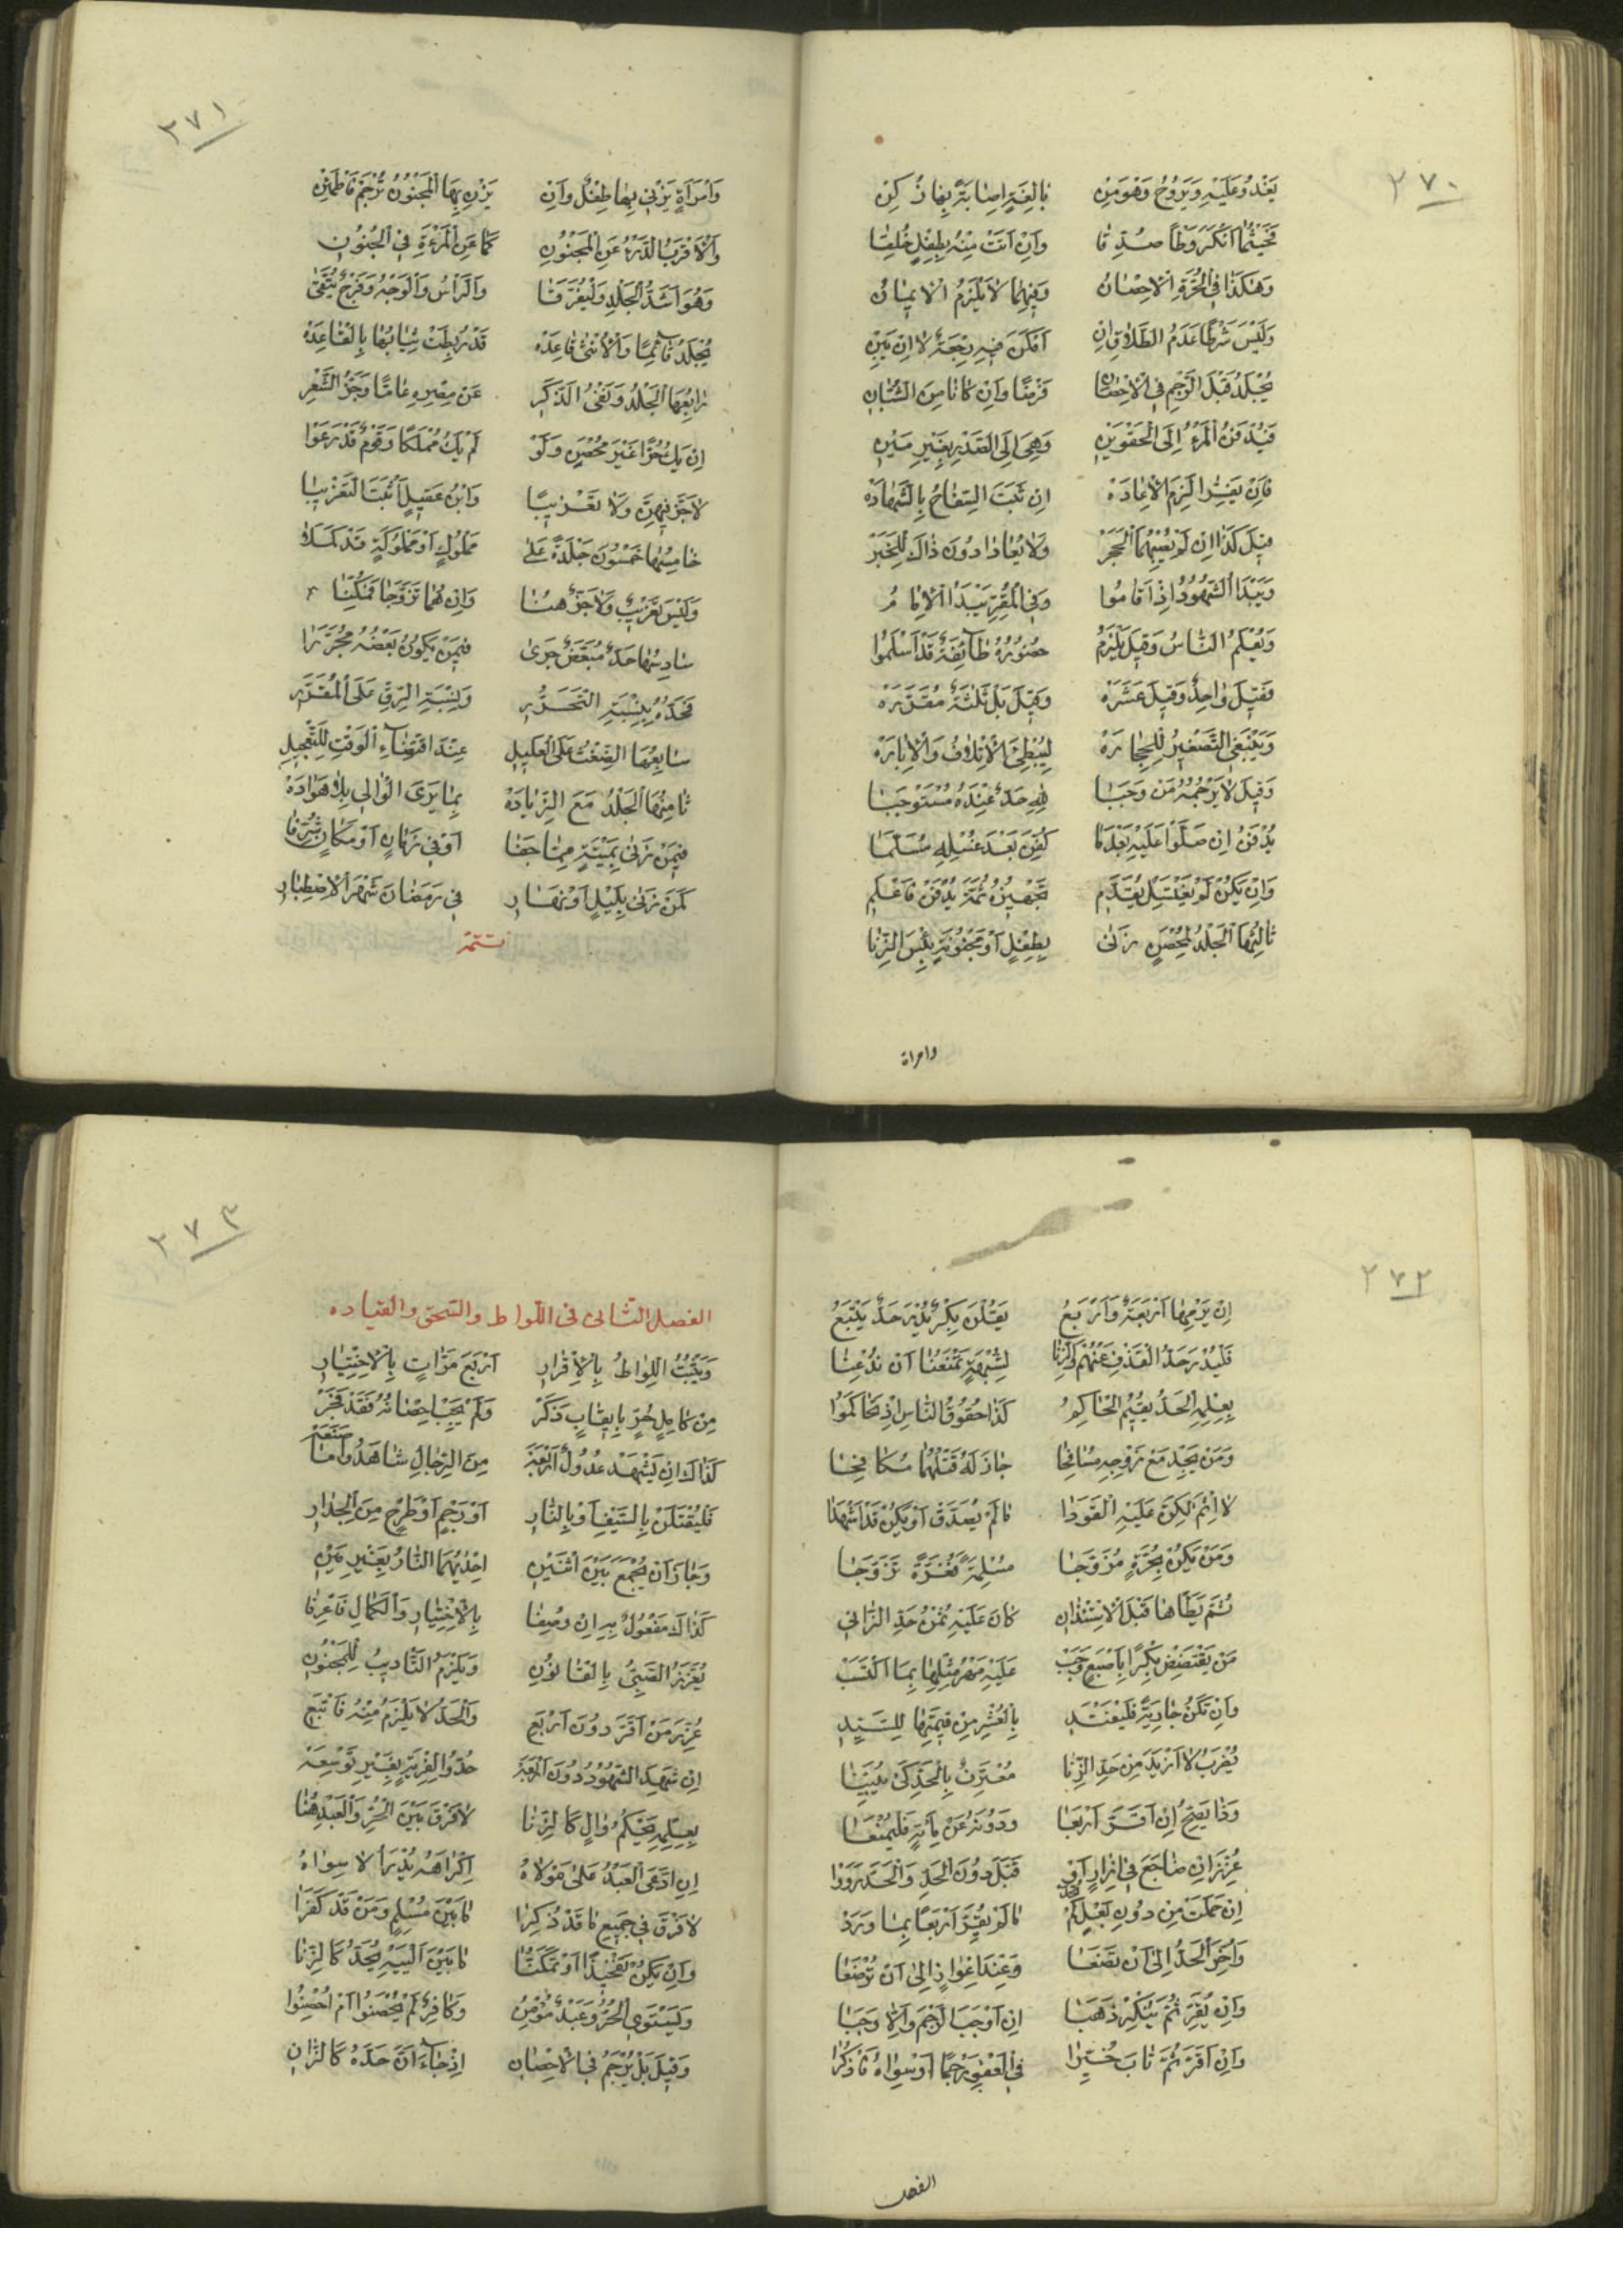 ٢٧٠
يَغْدُو عَلَيْهِ وَيَرُوحُ وَهْوَ مِنْ بَالِغَةٍ اِصَابَةً بِهَا زُكِنْ
فَحَيْثُمَا اَنْكَرَ وَطْأً صُدِّقَا وَاِنْ اَتَتْ مِنْهُ بِطِفْلٍ خُلِقَا
وَهٰكَذَا فِي الْحُرَّةِ الْاِحْصَانُ وَفِيهِمَا لَا يَلْزَمُ الْاِيمَانُ
وَلَيْسَ شَرْطًا عَدَمُ الطَّلَاقِ اِنْ اَمْكَنَ فِيهِ رَجْعَةٌ لَا اِنْ تَبِنْ
يُجْلَدُ قَبْلَ الرَّجْمِ فِي الْاِحْصَانِ فَرْضًا وَاِنْ كَانَا مِنَ الشُّبَّانِ
فَيُدْفَنُ الْمَرْءُ اِلَى الْحَقْوَيْنِ وَهِيَ اِلَى الصَّدْرِ بِغَيْرِ مَيْنِ
فَاِنْ يَفِرَّا لَزِمَ الْاِعَادَهْ اِنْ ثَبَتَ السِّفَاحُ بِالشَّهَادَهْ
قِيلَ كَذَا اِنْ لَمْ يُصِبْهُمَا الْحَجَرْ وَلَا يُعَادَا دُونَ ذَاكَ لِلْخَبَرْ
وَيَبْدَأُ الشُّهُودُ اِذْ اَقَامُوا وَفِي الْمُقِرِّ يَبْدَأُ الْاِمَامُ
وَيُعْلَمُ النَّاسُ وَقِيلَ يَلْزَمُ حُضُورُهُ طَائِفَةٌ قَدْ اَسْلَمُوا
فَقِيلَ وَاحِدٌ وَقِيلَ عَشَرَهْ وَقِيلَ بَلْ ثَلٰثَةٌ مُقَرَّرَهْ
وَيَنْبَغِي التَّصْغِيرُ لِلْحِجَارَهْ لِيُبْطِئَ الْاِتْلَافُ وَالْاِبَارَهْ
وَقِيلَ لَا يَرْجُمُهُ مَنْ وَجَبَا لِلّٰهِ حَدٌّ عِنْدَهُ مُسْتَوْجَبَا
يُدْفَنُ اِنْ صَلَّوْا عَلَيْهِ بَعْدَمَا كُفِّنَ بَعْدَ غُسْلِهِ مُسَلَّمَا
وَاِنْ يَكُنْ لَمْ يَغْتَسِلْ يُقَدَّمِ تَجْهِيزُهُ ثُمَّتَ يُدْفَنْ فَاعْلَمِ
ثَالِثُهَا الْجَلْدُ لِمُحْصَنٍ زَنٰى بِطِفْلٍ اَوْ مَجْنُونَةٍ بِئْسَ الزِّنَا
وامراة
٢٧١
وَامْرَأَةٍ يَزْنِي بِهَا طِفْلٌ وَاِنْ يَزْنِ بِهَا الْمَجْنُونُ تُرْجَمْ فَاطْمَئِنْ
وَالْاَقْرَبُ الدَّرْءُ عَنِ الْمَجْنُونِ كَمَا عَنِ الْمَرْءَةِ فِي الْجُنُونِ
وَهُوَ اَشَدُّ الْجَلْدِ وَلْيُفَرَّقَا وَالرَّأْسُ وَالْوَجْهُ وَفَرْجٌ يُتَّقٰى
يُجْلَدُ قَائِمًا وَالْاُنْثٰى قَاعِدَهْ قَدْ رُبِطَتْ ثِيَابُهَا بِالْقَاعِدَهْ
رَابِعُهَا الْجَلْدُ وَنَفْيُ الذَّكَرِ عَنْ مِصْرِهِ عَامًا وَجَزُّ الشَّعْرِ
اِنْ يَكُ حُرًّا غَيْرَ مُحْصَنٍ وَلَوْ لَمْ يَكُ مُمْلَكًا وَقَوْمٌ قَدْ رَعَوْا
لَا جَزَّ فِيهِنَّ وَلَا تَغْرِيبًا وَابْنُ عَقِيلٍ اَثْبَتَ التَّغْرِيبَا
خَامِسُهَا خَمْسُونَ جَلْدَةً عَلٰى مَمْلُوكٍ اَوْ مَمْلُوكَةٍ قَدْ كَمَلَا
وَلَيْسَ تَغْرِيبٌ وَلَا جَزٌّ هُنَا وَاِنْ هُمَا تَزَوَّجَا فَمُكِّنَا
سَادِسُهَا حَدٌّ مُبَعَّضٌ جَرٰى فِيمَنْ يَكُونُ بَعْضُهُ مُحَرَّرَا
فَحَدُّهُ بِنِسْبَةِ التَّحَرُّرِ وَنِسْبَةِ الرِّقِّ عَلَى الْمُقَرَّرِ
سَابِعُهَا الضِّغْثُ عَلَى الْعَلِيلِ عِنْدَ اقْتِضَاءِ الْوَقْتِ لِلتَّعْجِيلِ
ثَامِنُهَا الْجَلْدُ مَعَ الزِّيَادَهْ بِمَا يَرَى الْوَالِي بِلَا هَوَادَهْ
فِيمَنْ زَنٰى بِمَيْتَةٍ مِمَّا جَفَا اَوْ فِي زَمَانٍ اَوْ مَكَانٍ شُرِّفَا
كَمَنْ زَنٰى بِلَيْلٍ اَوْ نَهَارِ فِي رَمَضَانَ شَهْرِ الْاِصْطِبَارِ
تتمة
٢٧٢
اِنْ يَرْمِهَا اَرْبَعَةٌ وَاَرْبَعُ يَقُلْنَ بِكْرٌ يُدْرَ حَدٌّ يَتْبَعُ
فَلْيُدْرَ حَدُّ الْقَذْفِ عَنْهُمْ وَالزِّنَا لِشُبْهَةٍ تَمْنَعُنَا اَنْ نُذْعِنَا
بِعِلْمِهِ الْحَدَّ يُقِيمُ الْحَاكِمُ كَذَا حُقُوقُ النَّاسِ اِذْ تَحَاكَمُوا
وَمَنْ يَجِدْ مَعْ زَوْجِهِ مُسَافِحَا جَازَ لَهُ قَتْلُهُمَا مُكَافِحَا
لَا اِثْمَ لٰكِنَّ عَلَيْهِ الْقَوَدَا مَا لَمْ يُصَدَّقْ اَوْ يَكُنْ قَدْ اَشْهَدَا
وَمَنْ يَكُنْ بِحُرَّةٍ مُزَوَّجَا مُسْلِمَةٍ فَغَرَّةً تَزَوَّجَا
ثُمَّ يَطَأْهَا قَبْلَ الْاِسْتِئْذَانِ كَانَ عَلَيْهِ ثُمْنُ حَدِّ الزَّانِي
مَنْ يَقْتَضِضْ بِكْرًا بِاَصْبُعٍ وَجَبْ عَلَيْهِ مَهْرُ مِثْلِهَا بِمَا اكْتَسَبْ
وَاِنْ تَكُنْ جَارِيَةً فَلْيَفْتَدِ بِالْعُشْرِ مِنْ قِيمَتِهَا لِلسَّيِّدِ
يُضْرَبُ لَا اَزْيَدَ مِنْ حَدِّ الزِّنَا مُعْتَرِفٌ بِالْحَدِّ كَيْ يُبَيِّنَا
وَذَا يَصِحُّ اِنْ اَقَرَّ اَرْبَعَا وَدُونَهُ عَنْ مِأَةٍ فَلْيُمْنَعَا
عُزِّرَ اِنْ ضَاجَعَ فِي اِزَارٍ اَوْ قَبَّلَ دُونَ الْحَدِّ وَالْحَدَّ رَوَوْا
اِنْ حَمَلَتْ مِنْ دُونِ بَعْلٍ لَمْ تُحَدْ مَا لَمْ تُقِرَّ اَرْبَعًا بِمَا وَرَدْ
وَاُخِّرَ الْحَدُّ اِلٰى اَنْ تَضَعَا وَعِنْدَ اِعْوَازٍ اِلٰى اَنْ تُرْضِعَا
وَاِنْ يُقِرَّ ثُمَّ يُنْكِرْ ذَهَبَا اِنْ اَوْجَبَ الرَّجْمَ وَاِلَّا وَجَبَا
وَاِنْ اَقَرَّ ثُمَّ تَابَ خُيِّرَا فِي الْعَفْوِ رَجْمًا اَوْ سِوَاهُ ذُكِرَا
الفصل
٢٧٣
الفصل الثانى فى اللواط والسحق والقياده
وَيَثْبُتُ اللِّوَاطُ بِالْاِقْرَارِ اَرْبَعَ مَرَّاتٍ بِالْاِخْتِيَارِ
مِنْ كَامِلٍ حُرٍّ بِايقَابِ ذَكَرْ وَلَمْ يَجِبْ اِحْصَانُهُ فَقَدْ فَجَرْ
كَذَاكَ اِنْ يَشْهَدْ عُدُولٌ اَرْبَعَهْ مِنَ الرِّجَالِ شَاهَدُوا مَا صَنَعَهْ
فَلْيُقْتَلَنْ بِالسَّيْفِ اَوْ بِالنَّارِ اَوْ رَجْمٍ اَوْ طَرْحٍ مِنَ الْجِدَارِ
وَجَازَ اَنْ يُجْمَعَ بَيْنَ اثْنَيْنِ اِحْدٰيهُمَا النَّارُ بِغَيْرِ مَيْنِ
كَذَاكَ مَفْعُولٌ بِهِ اِنْ وُصِفَا بِالْاِخْتِيَارِ وَالْكَمَالِ فَاعْرِفَا
يُعَزَّرُ الصَّبِيُّ بِالْقَانُونِ وَيَلْزَمُ التَّأْدِيبُ لِلْمَجْنُونِ
عُزِّرَ مَنْ اَقَرَّ دُونَ اَرْبَعِ وَالْحَدُّ لَا يَلْزَمُ مِنْهُ فَاتْبَعِ
اِنْ شَهِدَ الشُّهُودُ دُونَ اَرْبَعَهْ حُدُّوا لِفِرْيَةٍ بِغَيْرِ تَوْسِعَهْ
بِعِلْمِهِ يَحْكُمُ وَالٍ كَالزِّنَا لَا فَرْقَ بَيْنَ الْحُرِّ وَالْعَبْدِ هُنَا
اِنِ ادَّعَى الْعَبْدُ عَلٰى مَوْلَاهُ اِكْرَاهَهُ يُدْرَأُ لَا سِوَاهُ
لَا فَرْقَ فِي جَمِيعِ مَا قَدْ ذُكِرَا مَا بَيْنَ مُسْلِمٍ وَمَنْ قَدْ كَفَرَا
وَاِنْ يَكُنْ تَفْخِيذًا اَوْ تَمَكُّنَا مَا بَيْنَ اَلْيَيْهِ يُحَدُّ كَالزِّنَا
وَيَسْتَوِي الْحُرُّ وَعَبْدٌ مُؤْمِنُ وَكَافِرٌ لَمْ يُحْصَنُوا اَمْ اُحْصِنُوا
وَقِيلَ بَلْ يُرْجَمُ فِي الْاِحْصَانِ اِذْ جَاءَ اَنَّ حَدَّهُ كَالزَّانِ